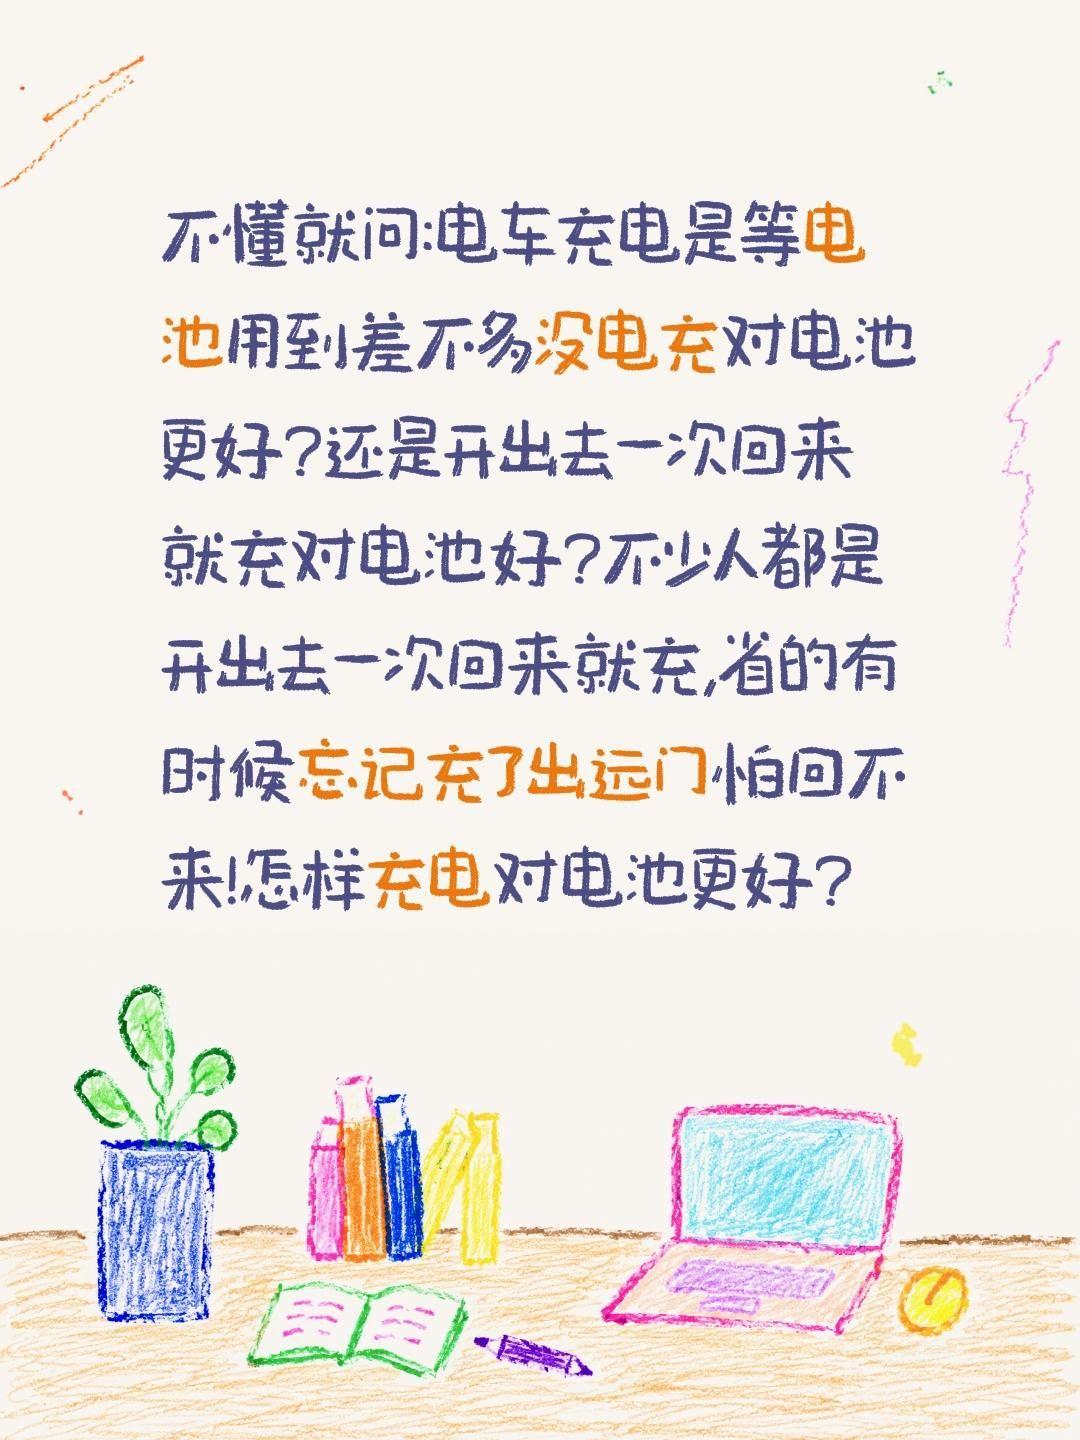 不懂就问:电车充电是等电
池用到差不多没电充对电池
更好?还是开出去一次回来
就充对电池好?不少人都是
开出去一次回来就充,省的有
时候忘记充了出远门怕回不
来!怎样充电对电池更好?